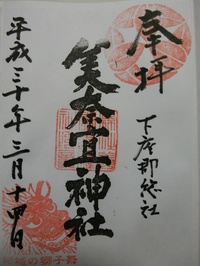 奉拝
下座郡総社
美奈宜神社
平成三十年三月十四日